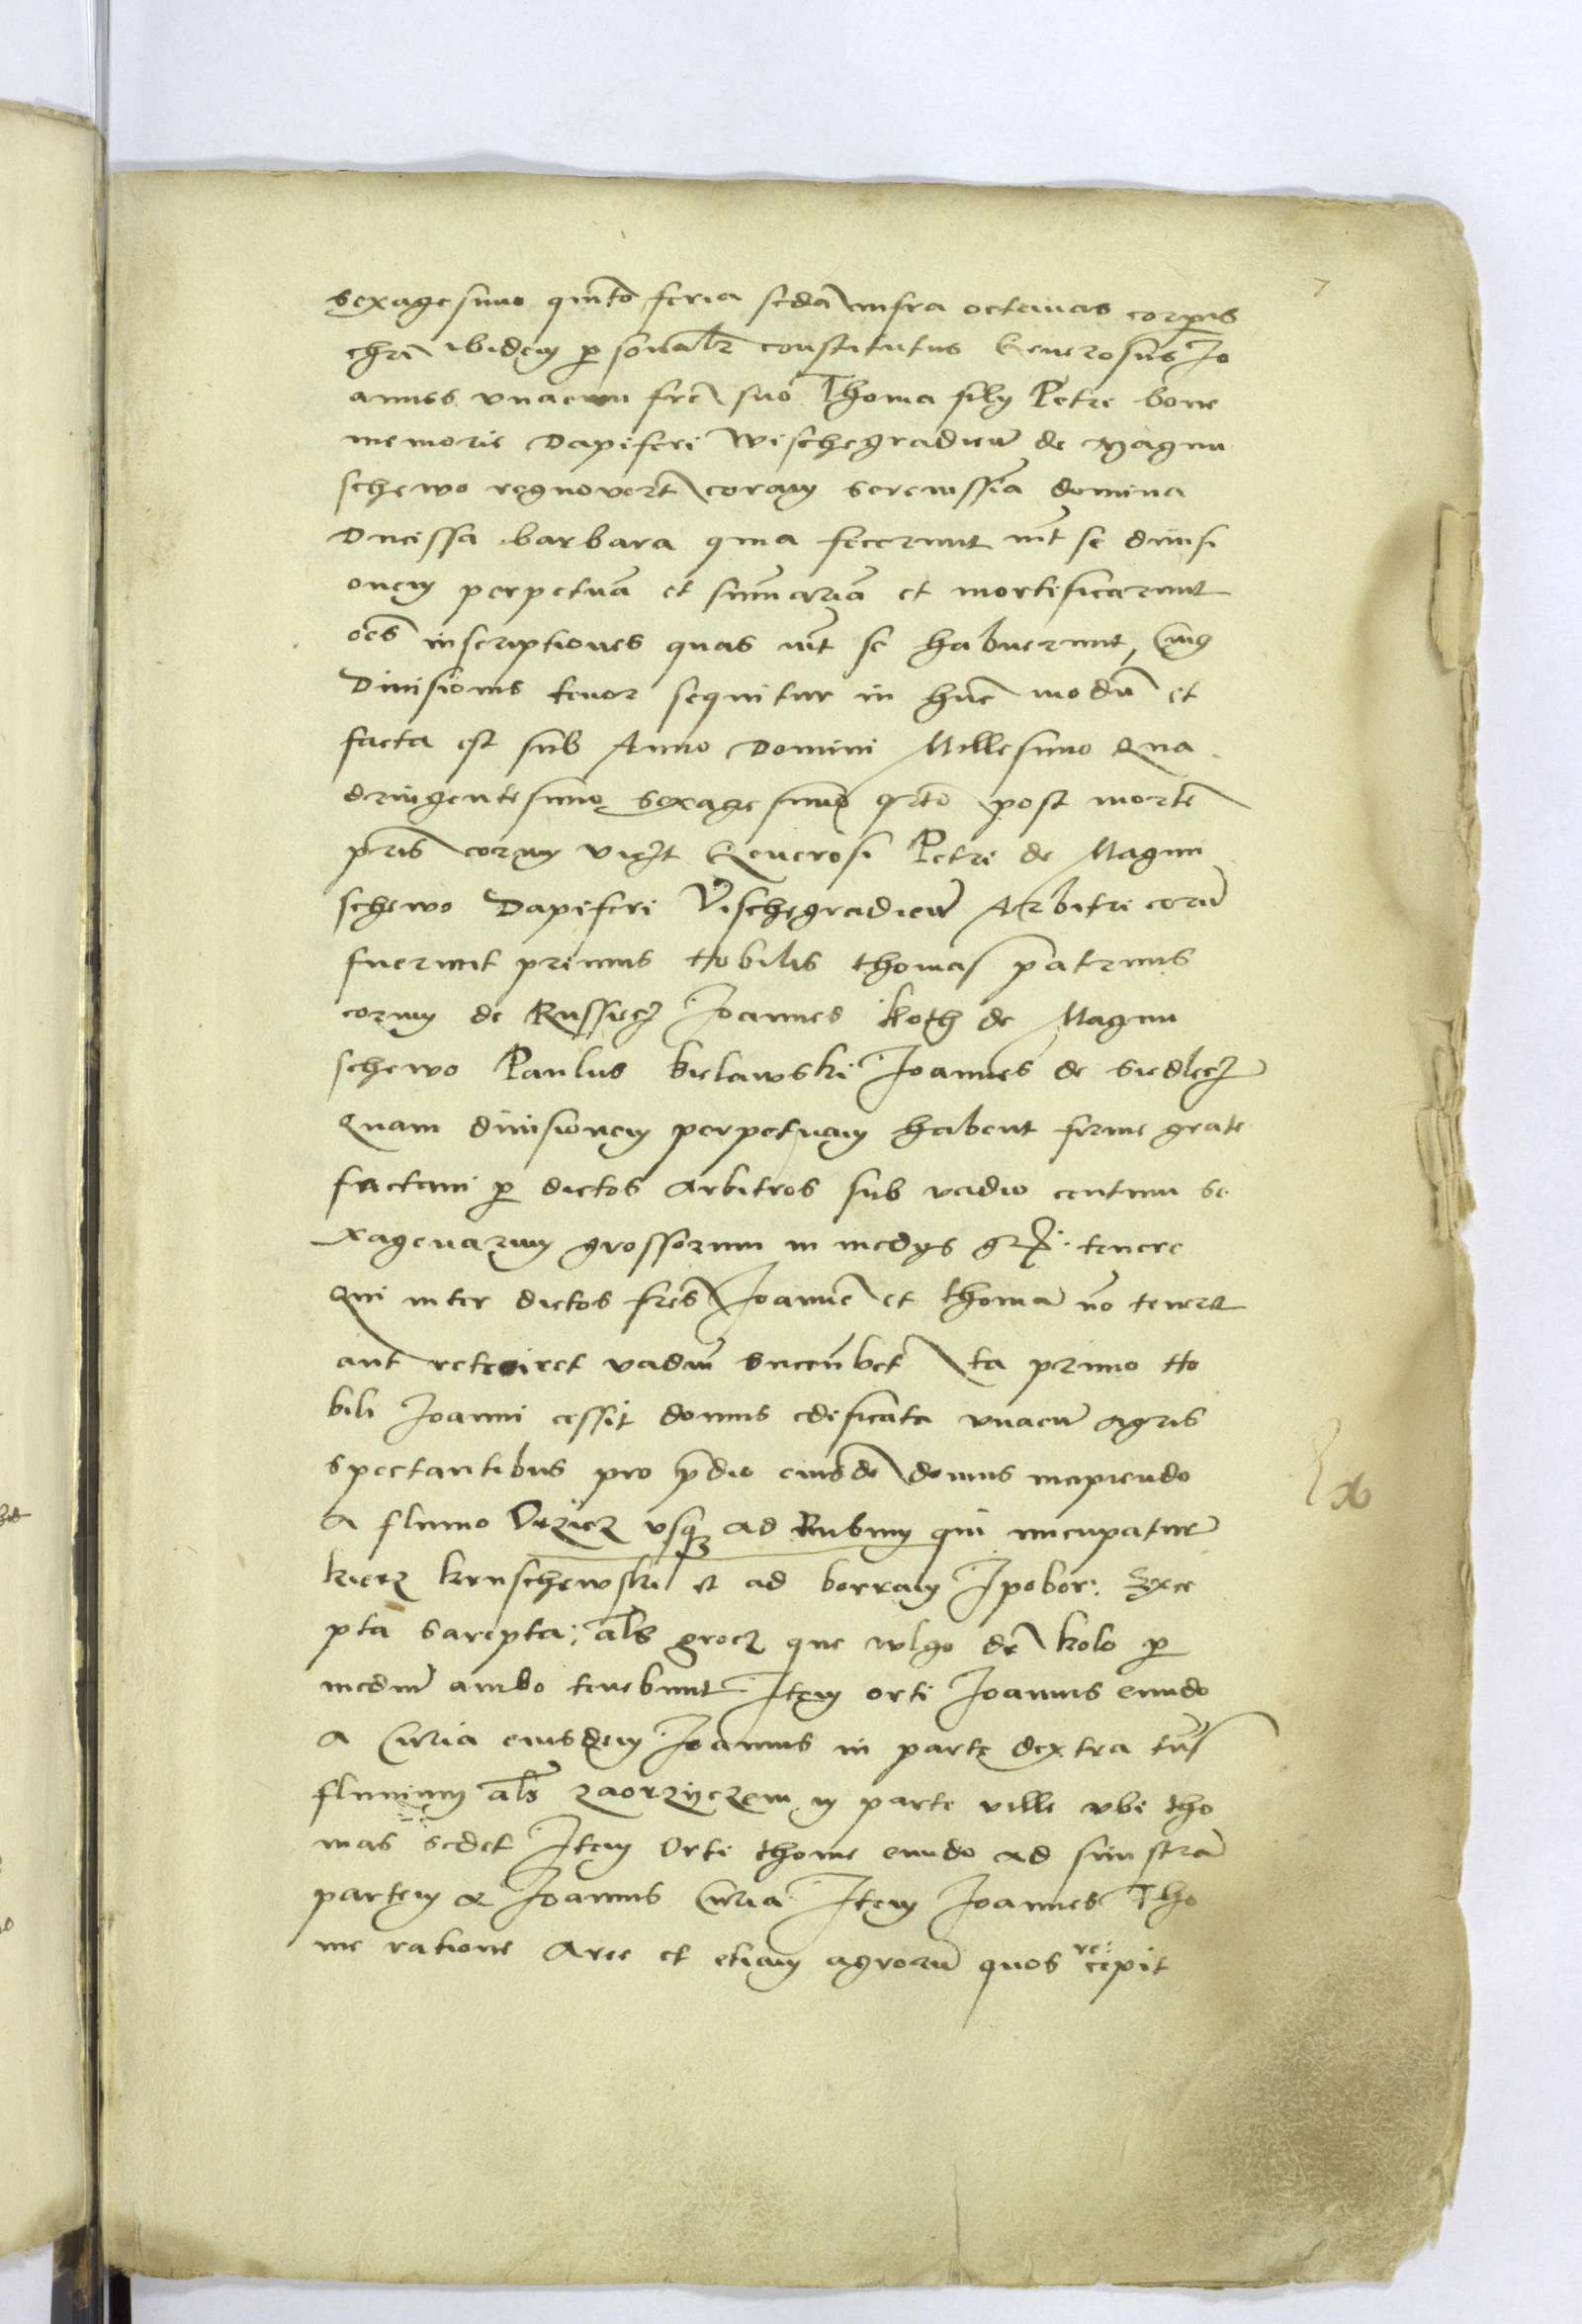 7
sexagesimo quinto feria scda infra octauas corpis
chri ibidem psonalr constitutus Generosus Jo
annes vnacum fre suo Thoma filij Petri bone
memorie Dapiferi Wischegradien de Magnu
schewo regnovert coram serenissia domina
Ducissa barbara quia fecerunt int se diuisi
onem perpetuā et sumariā et mortificarunt
oēs inscriptiones quas int se habuerunt, Cuig
Diuisionis tenor sequitur in hūc modū et
facta est sub Anno Domini Millesimo Qua
dringentesimo sexagesimo qrto post mortē
pris eorum vict Generosi Petri de Magnu
schewo Dapiferi Vischegradien Arbitri eorū
fuerunt primus Nobilis thomas patruus
eorum de Russiecz Joannes koth de Magnu
schewo Paulus bielawski Joannes de Siedlecz
Quam diuisionem perpetuam habent firme grate
factam p dictos arbitros sub vadio centum se
xagenarum grossorum in medys tenere
Qui inter dictos frēs Joannē et thomā nō teneret
aut vadiū succūbet Ita primo No
bili Joanni cessit domus edificata vnacū agris
spectantibus pro pdio eiusdē domus incipiendo
a fluuio Orzicz vsq ad Rubum qui nūcupatur
kierz krnschewski et ad borram Ipobor: Exce
pta sarepta: als grocz que wlgo dr kolo p
mediū ambo tenebunt Item orti Joannis eundo
a Curia eiusdem Joannis in parte dextra
fluuium als zaorzyczem in parte ville vbi tho
mas sedet Item Orti thome eundo ad sinistrā
partem a Joannis Curia Item Joannes Tho
me ratione aree et etiam agrorū quos recepit